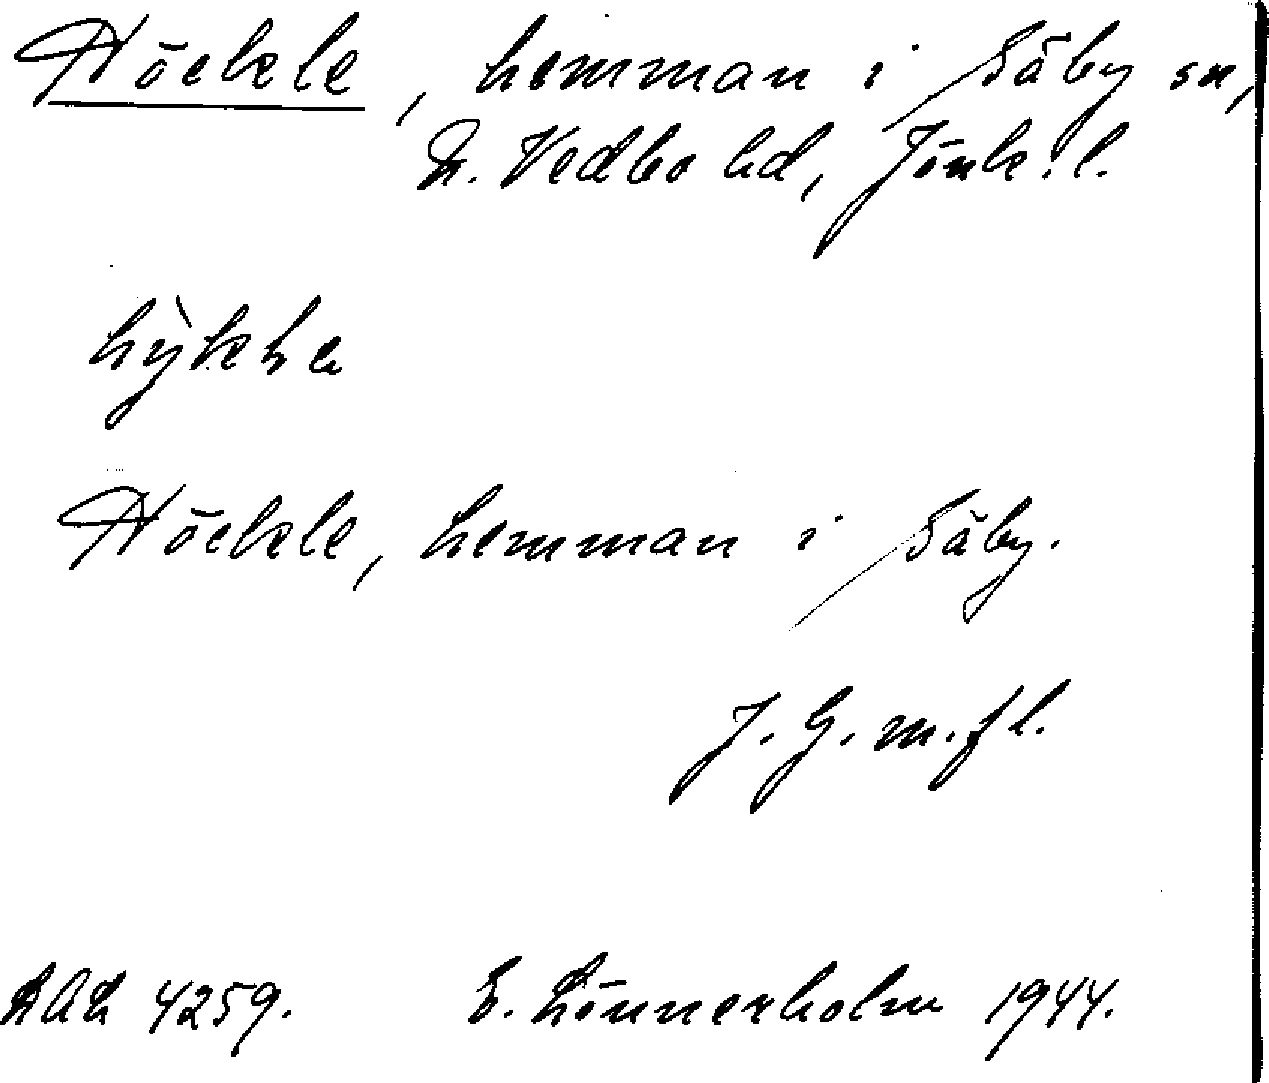 Höckle, hemman i Säby sn,
N. Vedbo hd, Jönk. l.
hỳkhe
Höckle, hemman i Säby.
J. G. m. fl.
4259. E. Lönnerholm 1944.